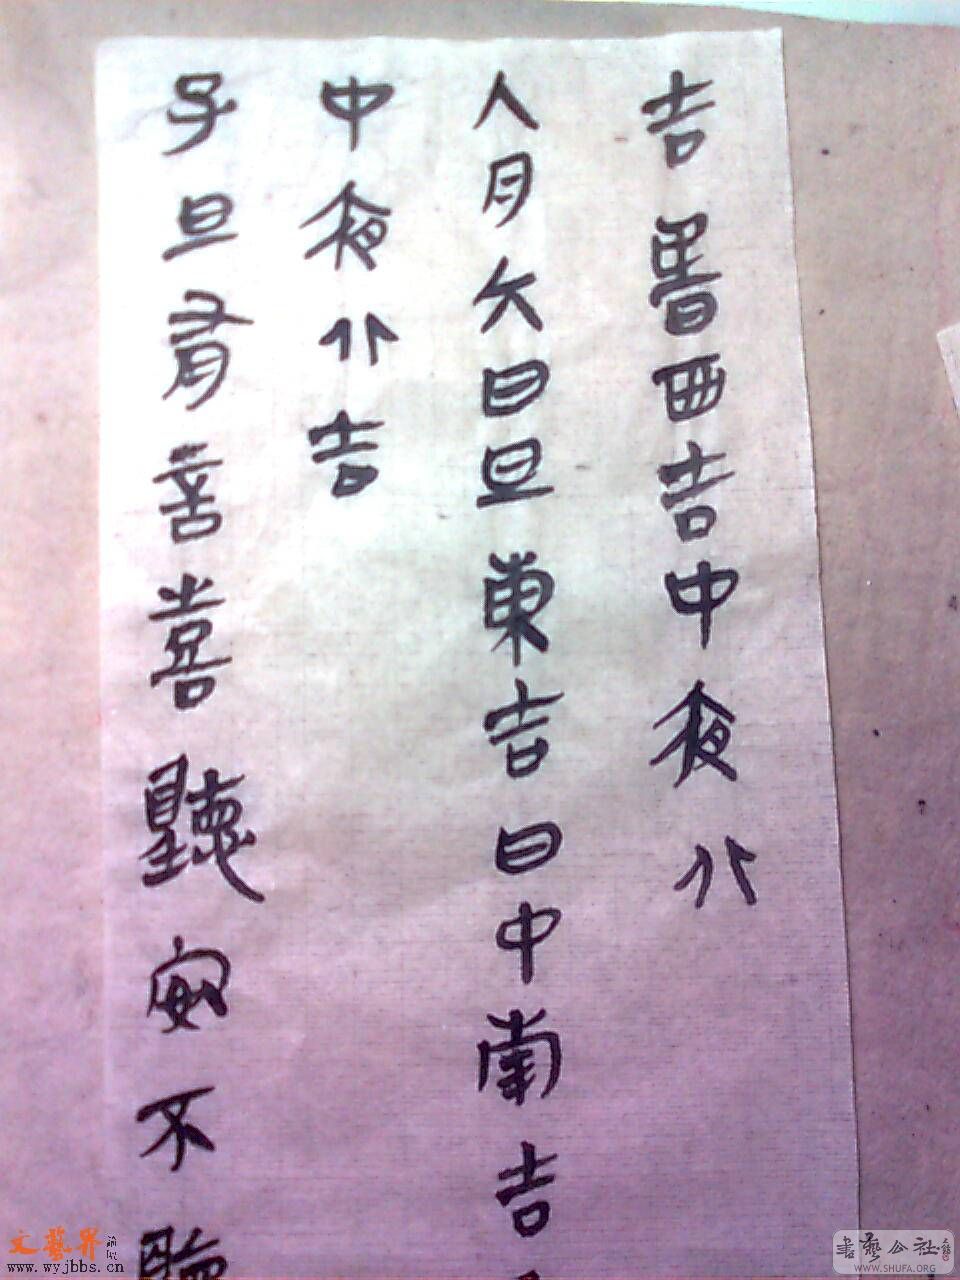 吉昏西吉中夜北
入月六日旦東吉日中南吉
中夜北吉
子旦有言喜聽安不聽
文藝界論壇
www.wyjbbs.cn
書藝公社
WWW.SHUFA.ORG